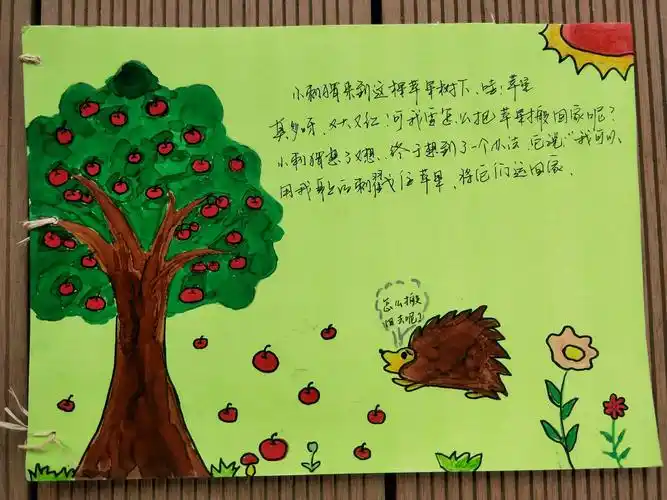 小刺猬来到这棵苹果树下，哇！苹果
真多呀，又大又红！可我该怎么把苹果搬回家呢？
小刺猬想了想，终于想到了一个办法，它说："我可以
用我身上的刺戳住苹果，将它们运回家．
怎么搬
回去呢？